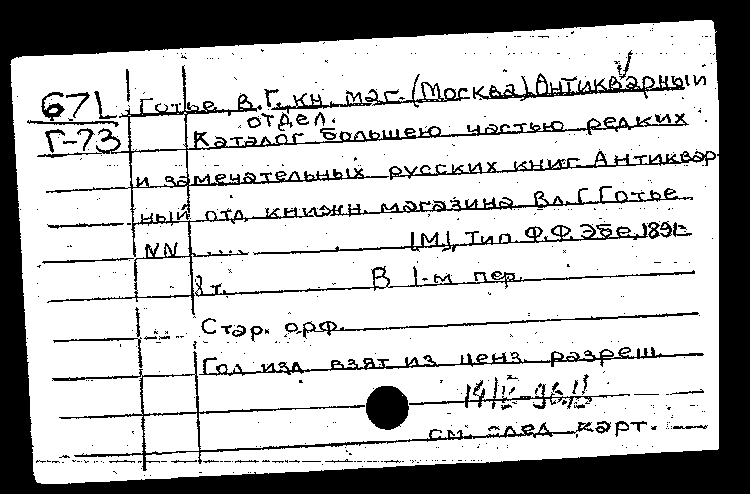 67L Готье, В.Г., кн. маг. (Москва). Антикварный
отдел.
Г-73 Каталог большею частью редких
и замечательных русских книг. Антиквар-
ный отд. книжн. магазина Вл. Г. Готье
NN .... [М], Тип. Ф.Ф. Эбе, 1891-
8 т. В 1-м пер.
Стар. орф.
Год изд. взят из ценз. разреш.
см. след. карт.